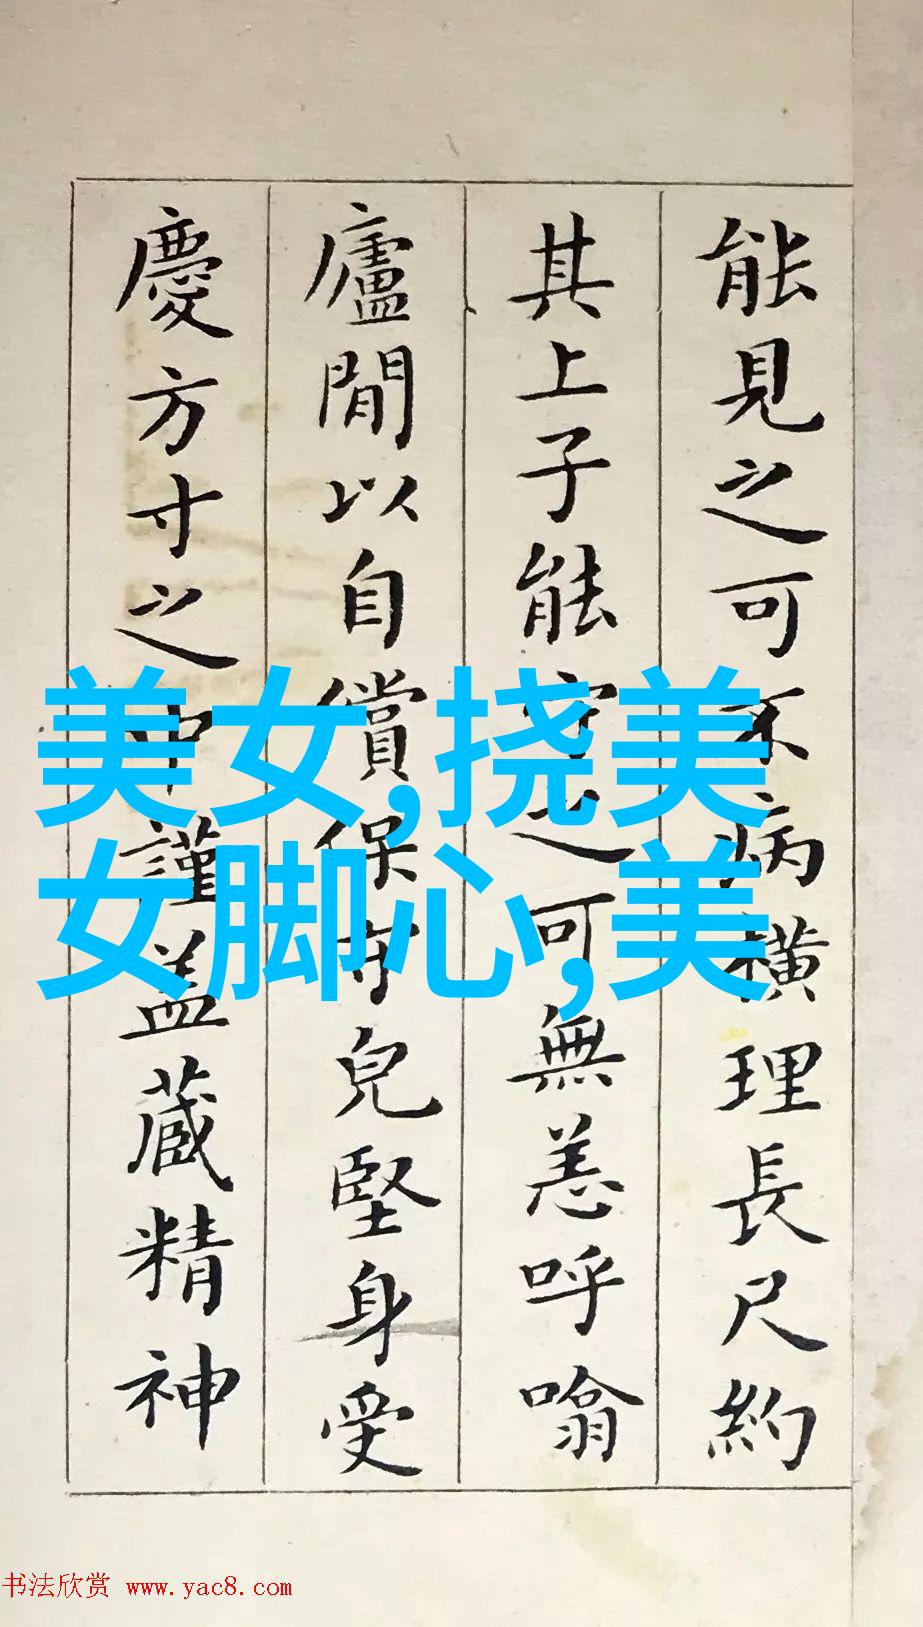 能見之可不病橫理長尺約
其上子能守之可無恙呼噏
廬間以自償保守兒堅身受
慶方寸之中謹盖藏精神
美女,挠美
女脚心,美
书法欣赏 www.yac8.com